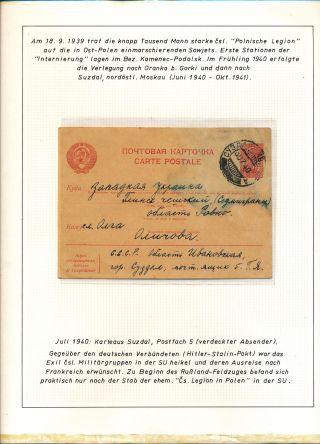 Am 18. 9. 1939 traf die knapp Tausend Mann starke čsl. "Polnische Legion"
auf die in Ost-Polen einmarschierenden Sowjets. Erste Stationen der
"Internierung" lagen im Bez. Kamenec-Podolsk. Im Frühling 1940 erfolgte
die Verlegung nach Oranka b. Gorki und dann nach
Suzdal, nordöstl. Moskau (Juni 1940 - Okt. 1941).
ПОЧТОВАЯ КАРТОЧКА
CARTE POSTALE
Куда Западная Украина
чешский,
область Ровно.
Кому
сл. Ольга
С.С.С.Р. область Ивановская,
гор. Суздаль, почт. ящик
Juli 1940: Karte aus Suzdal, Postfach 5 (verdeckter Absender).
Gegenüber den deutschen Verbündeten (Hitler-Stalin-Pakt) war das
Exil čsl. Militärgruppen in der SU heikel und deren Ausreise nach
Frankreich erwünscht. Zu Beginn des Rußland-Feldzuges befand sich
praktisch nur noch der Stab der ehem. "Čs. Legion in Polen" in der SU.